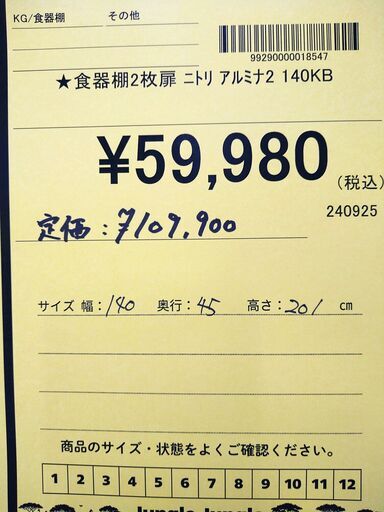 KG/食器棚 その他
99290000018547
★食器棚2枚扉 ニトリ アルミナ2 140KB
¥59,980
(税込)
240925
定価:¥109,900
サイズ 幅:140 奥行:45 高さ:201 cm
商品のサイズ・状態をよくご確認ください。
1 2 3 4 5 6 7 8 9 10 11 12
Jungle Jungle